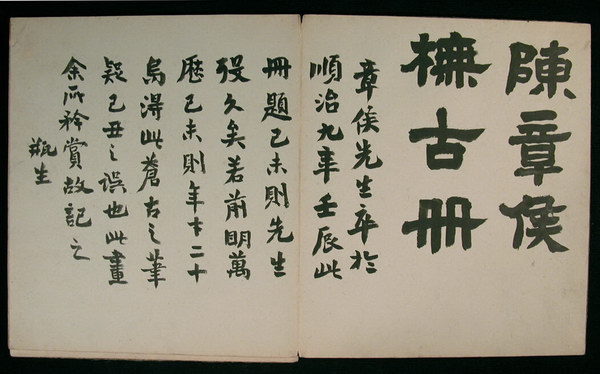 陳章侯
橅古冊
章侯先生卒於
順治九年壬辰此
冊題己未則先生
歿久矣若前明萬
歷己未則年才二十
烏得此蒼古之筆
疑己丑之误也此畫
余所矜賞故記之
瓶生